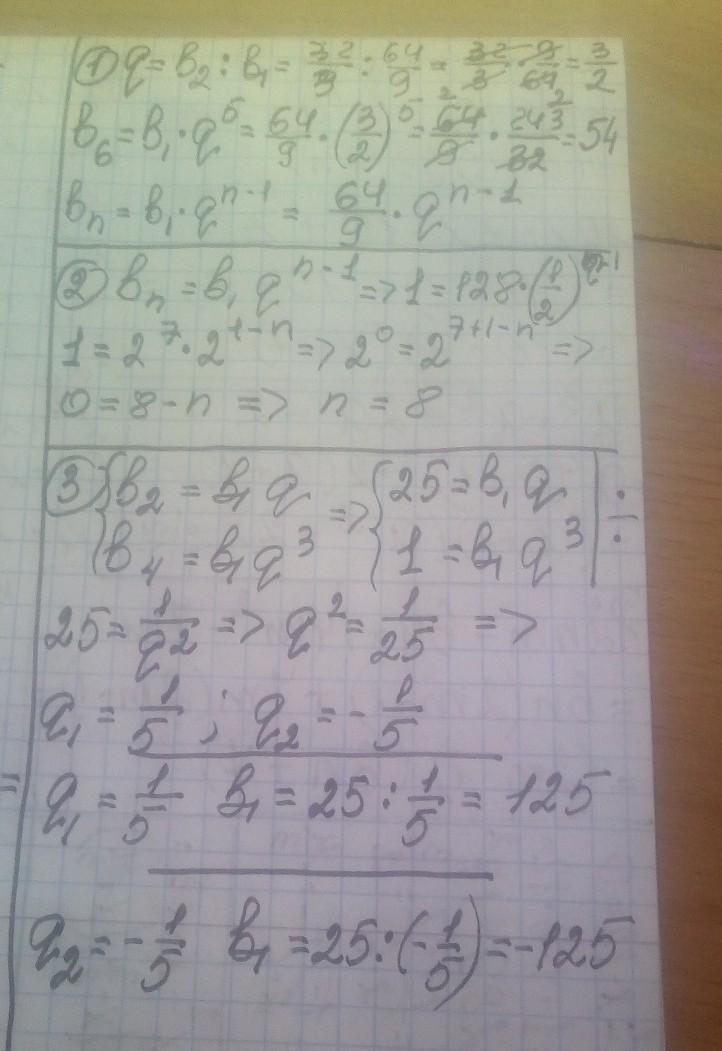 ① q = b₂ : b₁ = 32/3 : 64/9 = 32/3 · 9/64 = 3/2
b₆ = b₁ · q⁵ = 64/9 · (3/2)⁵ = 64/9 · 243/32 = 54
bₙ = b₁ · qⁿ⁻¹ = 64/9 · qⁿ⁻¹
② bₙ = b₁ qⁿ⁻¹ => 1 = 128 · (1/2)ⁿ⁻¹
1 = 2⁷ · 2¹⁻ⁿ => 2⁰ = 2⁷⁺¹⁻ⁿ =>
0 = 8 - n => n = 8
③ { b₂ = b₁ q => { 25 = b₁ q | :
b₄ = b₁ q³ 1 = b₁ q³
25 = 1/q² => q² = 1/25 =>
q₁ = 1/5 ; q₂ = - 1/5
q₁ = 1/5 b₁ = 25 : 1/5 = 125
q₂ = - 1/5 b₁ = 25 : (- 1/5) = -125